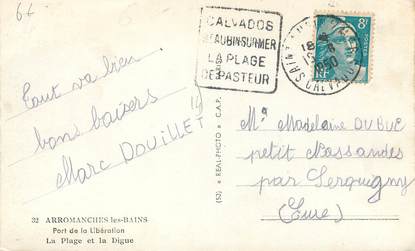 66
CALVADOS
St AUBIN SUR MER
LA PLAGE
DE PASTEUR
18
1950
CALVADOS
8F
RF
Tout va bien
bons baisers
Marc DOUILLET
(52) « REAL-PHOTO » C.A.P.
Mme Madelaine DUBUC
petit Nassandes
par Serquigny
(Eure)
32 ARROMANCHES-les-BAINS
Port de la Libération
La Plage et la Digue